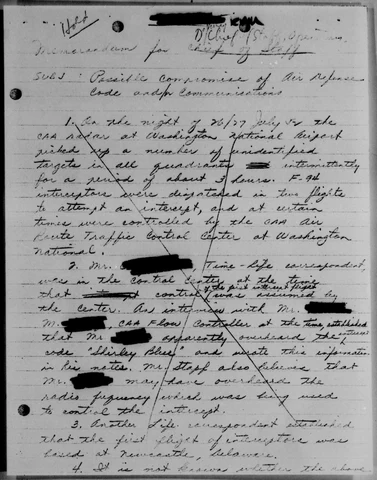 Hold
D/Chief of Staff, Operations
Memorandum for Chief of Staff
SUBJ: Possible compromise of Air Defense
Code and/or Communications
1. On the night of 26/27 July 52 the
CAA radar at Washington National Airport
picked up a number of unidentified
targets in all quadrants intermittently
for a period of about 3 hours. F-94
interceptors were dispatched in two flights
to attempt an intercept, and at certain
times were controlled by the CAA Air
Route Traffic Control Center at Washington
National.
2. Mr. Time-Life correspondent,
was in the control center at the time
that control of the first intercept flight was assumed by
the Center. An interview with Mr.
M. CAA Flow Controller at the time established
that Mr. apparently overheard the intercept
code "Shirley Blue" and wrote this information
in his notes. Mr. Staff also believes that
Mr. may have overheard the
radio frequency which was being used
to control the intercept.
3. Another Life correspondent established
that the first flight of interceptors was
based at Newcastle, Delaware.
4. It is not known whether the above